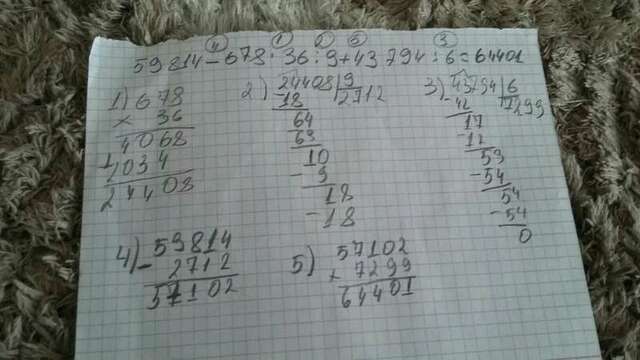 ④ ① ② ⑤ ③
59814-678·36:9+43794:6=64401
1) 678
× 36
4068
2034
24408
2) 24408 | 9
-18 2712
64
63
10
- 9
18
- 18
3) 43794 | 6
-42 7299
17
-12
59
-54
54
-54
0
4) 59814
- 2712
57102
5) 57102
+ 7299
64401